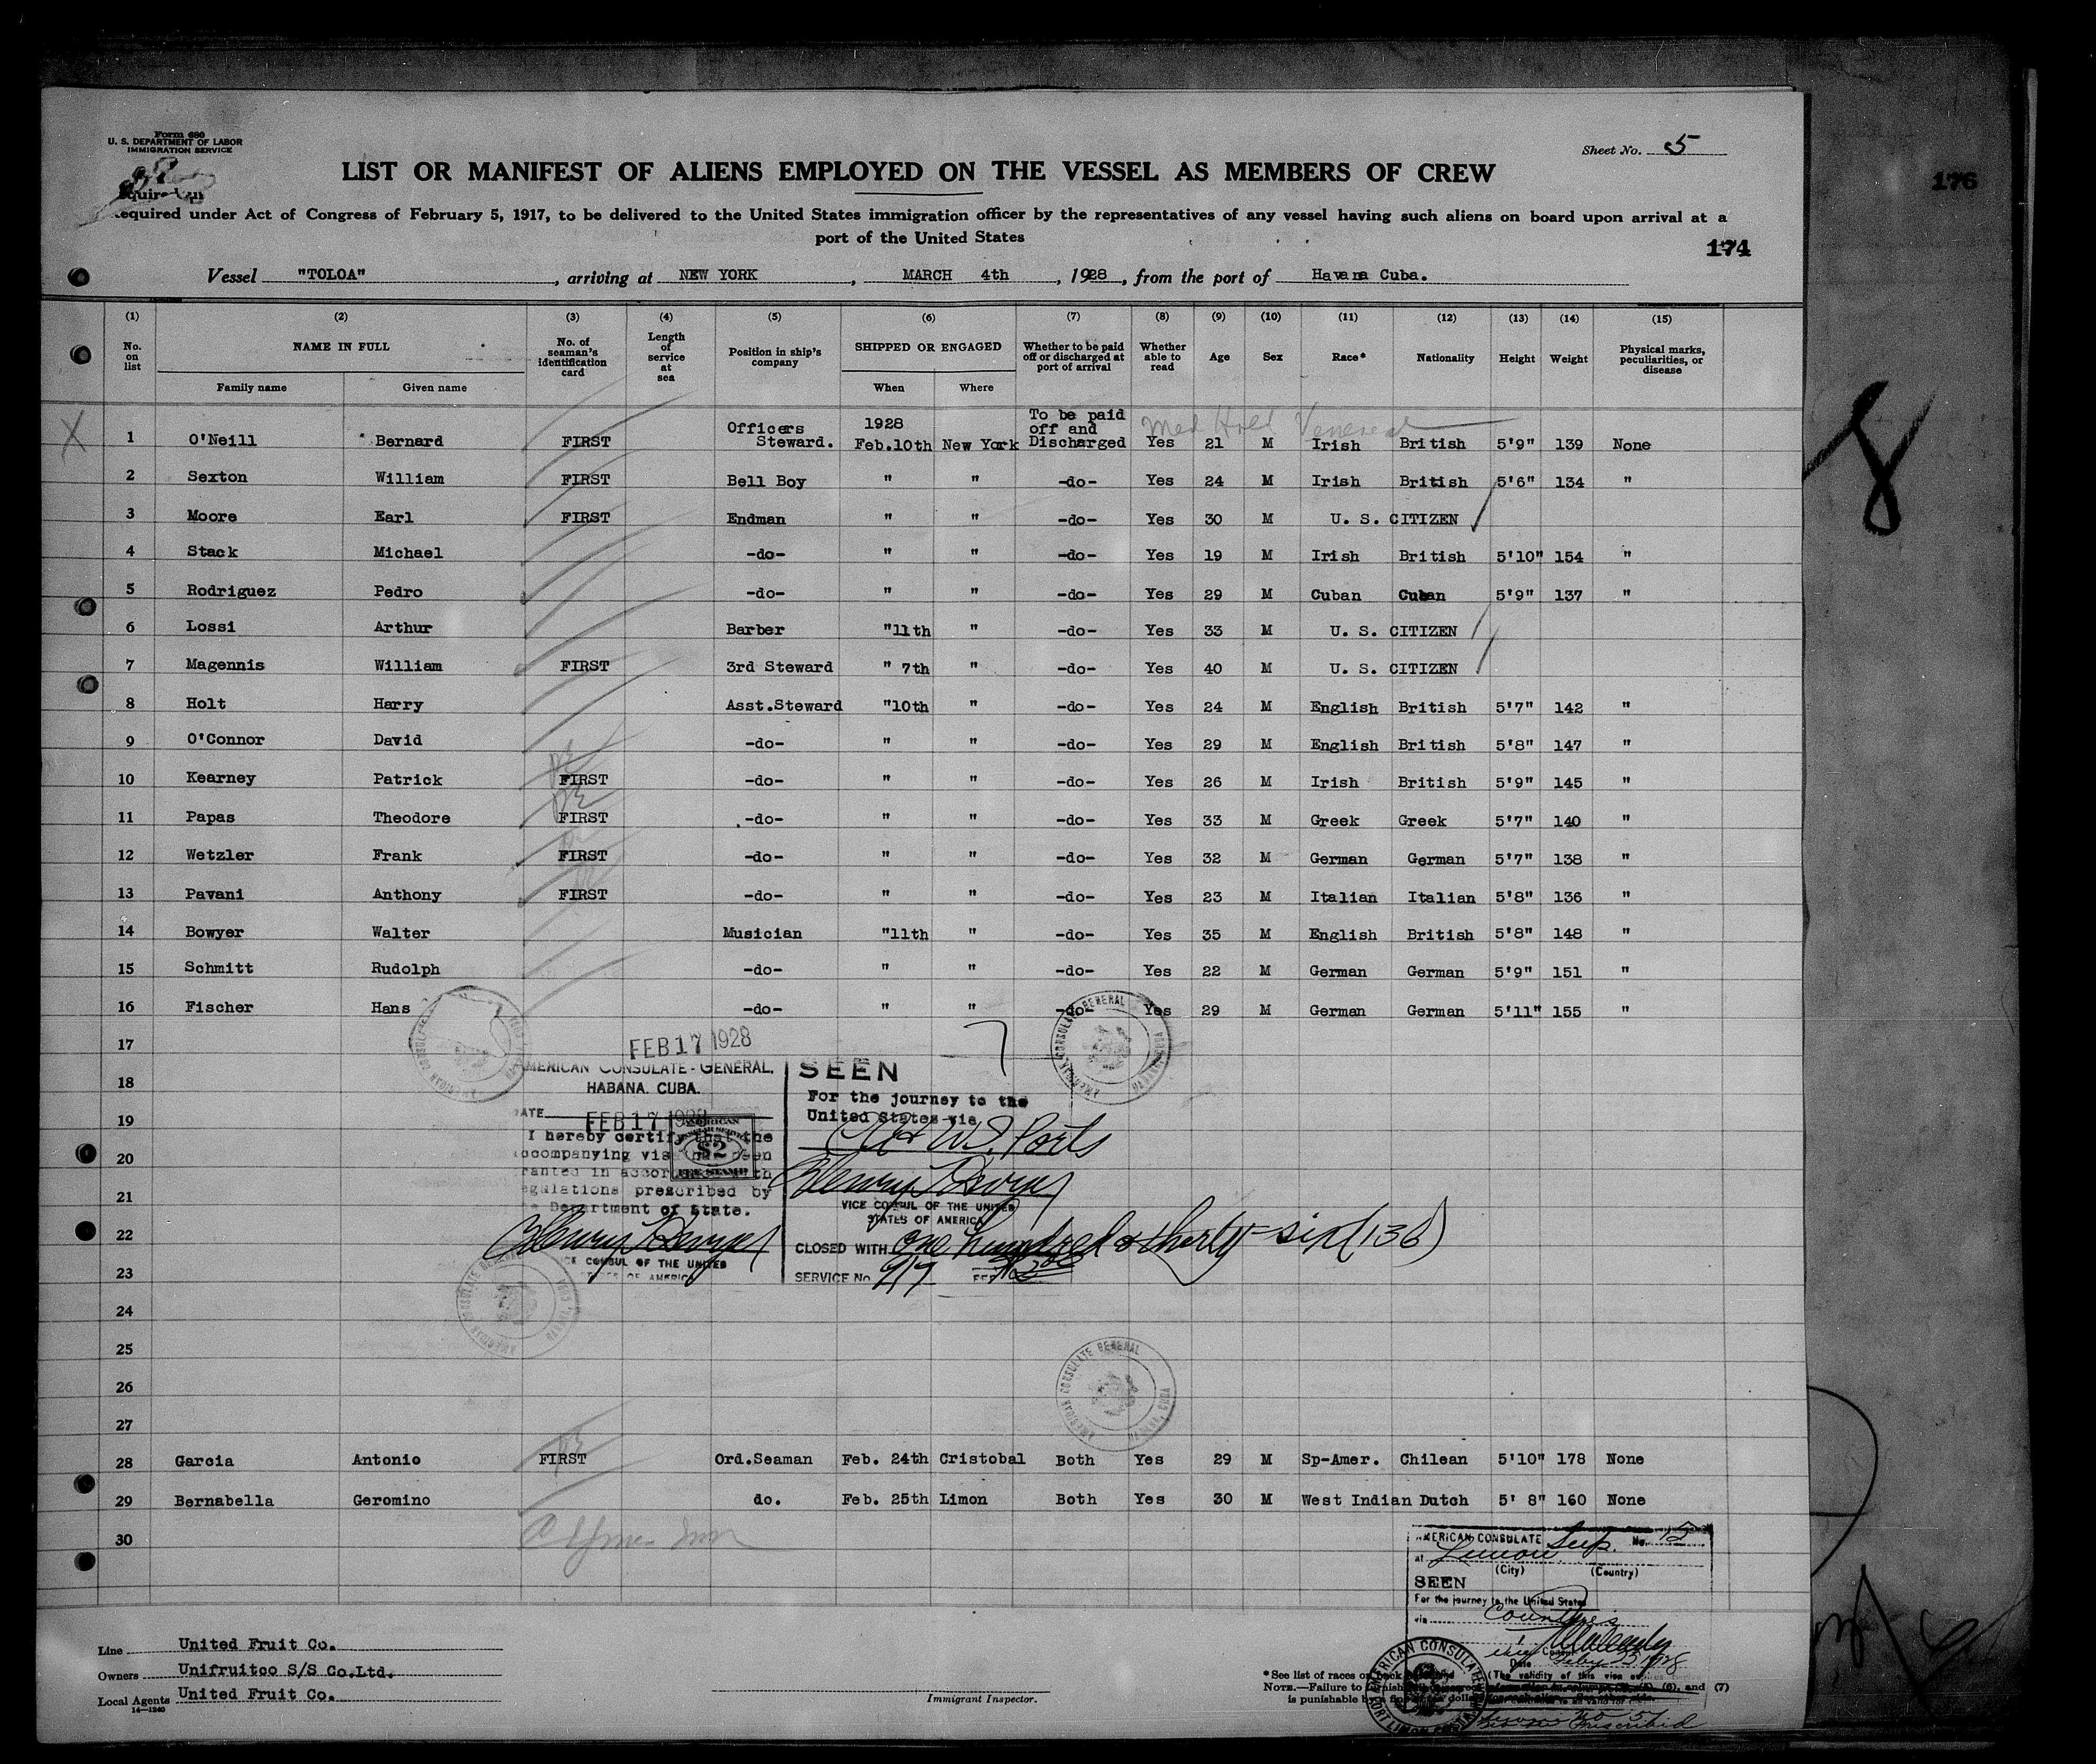 Form 680
U. S. DEPARTMENT OF LABOR
IMMIGRATION SERVICE
Sheet No. 5
176
LIST OR MANIFEST OF ALIENS EMPLOYED ON THE VESSEL AS MEMBERS OF CREW
equired under Act of Congress of February 5, 1917, to be delivered to the United States immigration officer by the representatives of any vessel having such aliens on board upon arrival at a
port of the United States
174
Vessel "TOLOA", arriving at NEW YORK, MARCH 4th, 1928, from the port of Havana Cuba.
(1) (2) (3) (4) (5) (6) (7) (8) (9) (10) (11) (12) (13) (14) (15)
No. on list NAME IN FULL No. of seaman's identification card Length of service at sea Position in ship's company SHIPPED OR ENGAGED Whether to be paid off or discharged at port of arrival Whether able to read Age Sex Race* Nationality Height Weight Physical marks, peculiarities, or disease
Family name Given name When Where
Med Hold Venereal
X 1 O'Neill Bernard FIRST Officers Steward. 1928 Feb.10th New York To be paid off and Discharged Yes 21 M Irish British 5'9" 139 None
2 Sexton William FIRST Bell Boy " " -do- Yes 24 M Irish British 5'6" 134 "
3 Moore Earl FIRST Endman " " -do- Yes 30 M U. S. CITIZEN "
4 Stack Michael -do- " " -do- Yes 19 M Irish British 5'10" 154 "
5 Rodriguez Pedro -do- " " -do- Yes 29 M Cuban Cuban 5'9" 137 "
6 Lossi Arthur Barber "11th " -do- Yes 33 M U. S. CITIZEN
7 Magennis William FIRST 3rd Steward " 7th " -do- Yes 40 M U. S. CITIZEN
8 Holt Harry Asst.Steward "10th " -do- Yes 24 M English British 5'7" 142 "
9 O'Connor David -do- " " -do- Yes 29 M English British 5'8" 147 "
10 Kearney Patrick FIRST -do- " " -do- Yes 26 M Irish British 5'9" 145 "
11 Papas Theodore FIRST -do- " " -do- Yes 33 M Greek Greek 5'7" 140 "
12 Wetzler Frank FIRST -do- " " -do- Yes 32 M German German 5'7" 138 "
13 Pavani Anthony FIRST -do- " " -do- Yes 23 M Italian Italian 5'8" 136 "
14 Bowyer Walter Musician "11th " -do- Yes 35 M English British 5'8" 148 "
15 Schmitt Rudolph -do- " " -do- Yes 22 M German German 5'9" 151 "
16 Fischer Hans -do- " " -do- Yes 29 M German German 5'11" 155 "
17
18
19
20
21
22
23
24
25
26
27
FEB 17 1928
MERICAN CONSULATE-GENERAL,
HABANA. CUBA.
ATE FEB 17 1928
I hereby certify that the
ccompanying visa has been
ranted in accordance with
egulations prescribed by
Department of State.
Henry
CONSUL OF THE UNITED
OF AMERICA
AMERICAN
$2
FEE STAMP
SEEN
For the journey to the
United States via
Ports
Henry
VICE CONSUL OF THE UNITED
STATES OF AMERICA
CLOSED WITH one hundred & thirty-six (136)
SERVICE No.
AMERICAN CONSULATE GENERAL
28 Garcia Antonio FIRST Ord.Seaman Feb. 24th Cristobal Both Yes 29 M Sp-Amer. Chilean 5'10" 178 None
29 Bernabella Geromino do. Feb. 25th Limon Both Yes 30 M West Indian Dutch 5' 8" 160 None
30
AMERICAN CONSULATE Sup. No. 12
at Limon
(City) (Country)
SEEN
For the journey to the United States
via
Consul
Date Feby 25 1928
(The validity of this visa
AMERICAN CONSULATE
PORT LIMON
Line United Fruit Co.
Owners Unifruitco S/S Co.Ltd.
Local Agents United Fruit Co.
14—1240
Immigrant Inspector.
*See list of races on back
NOTE.—Failure to furnish (6), and (7)
is punishable by a fine of ten dollars